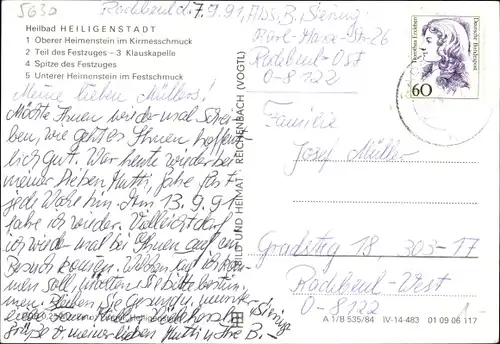 5630
Radebeul d. 7.9.91, Abs. B.
Karl-Marx-Str. 26
Radebeul-Ost
O-8122
Heilbad HEILIGENSTADT
1 Oberer Heimenstein im Kirmesschmuck
2 Teil des Festzuges – 3 Klauskapelle
4 Spitze des Festzuges
5 Unterer Heimenstein im Festschmuck
Dorothea Erxleben
Deutsche Bundespost
60
Meine lieben Müllers!
Möchte Ihnen wieder mal schrei-
ben, wie geht es Ihnen hoffent-
lich gut. War heute wieder bei
meiner lieben Mutti, fahre fast
jede Woche hin. Am 13.9.91
fahre ich wieder. Vielleicht darf
ich wieder mal bei Ihnen auf ein
Besuch kommen. Wann ich
soll, bitte bestim-
men. Bleiben Sie gesund, munter
Herzl.
Grüße v. meiner lieben Mutti u. Ihre B.
BILD UND HEIMAT REICHENBACH (VOGTL)
Familie
Josef Müller
18, 303-17
Radebeul-West
O-8122
A 1/B 535/84 IV-14-483 01 09 06 117